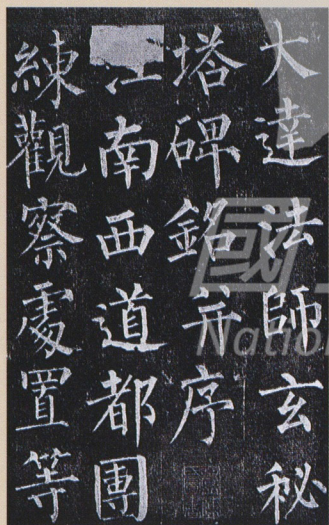 大達法師玄秘
塔碑銘并序
江南西道都團
練觀察處置等
國
Nation